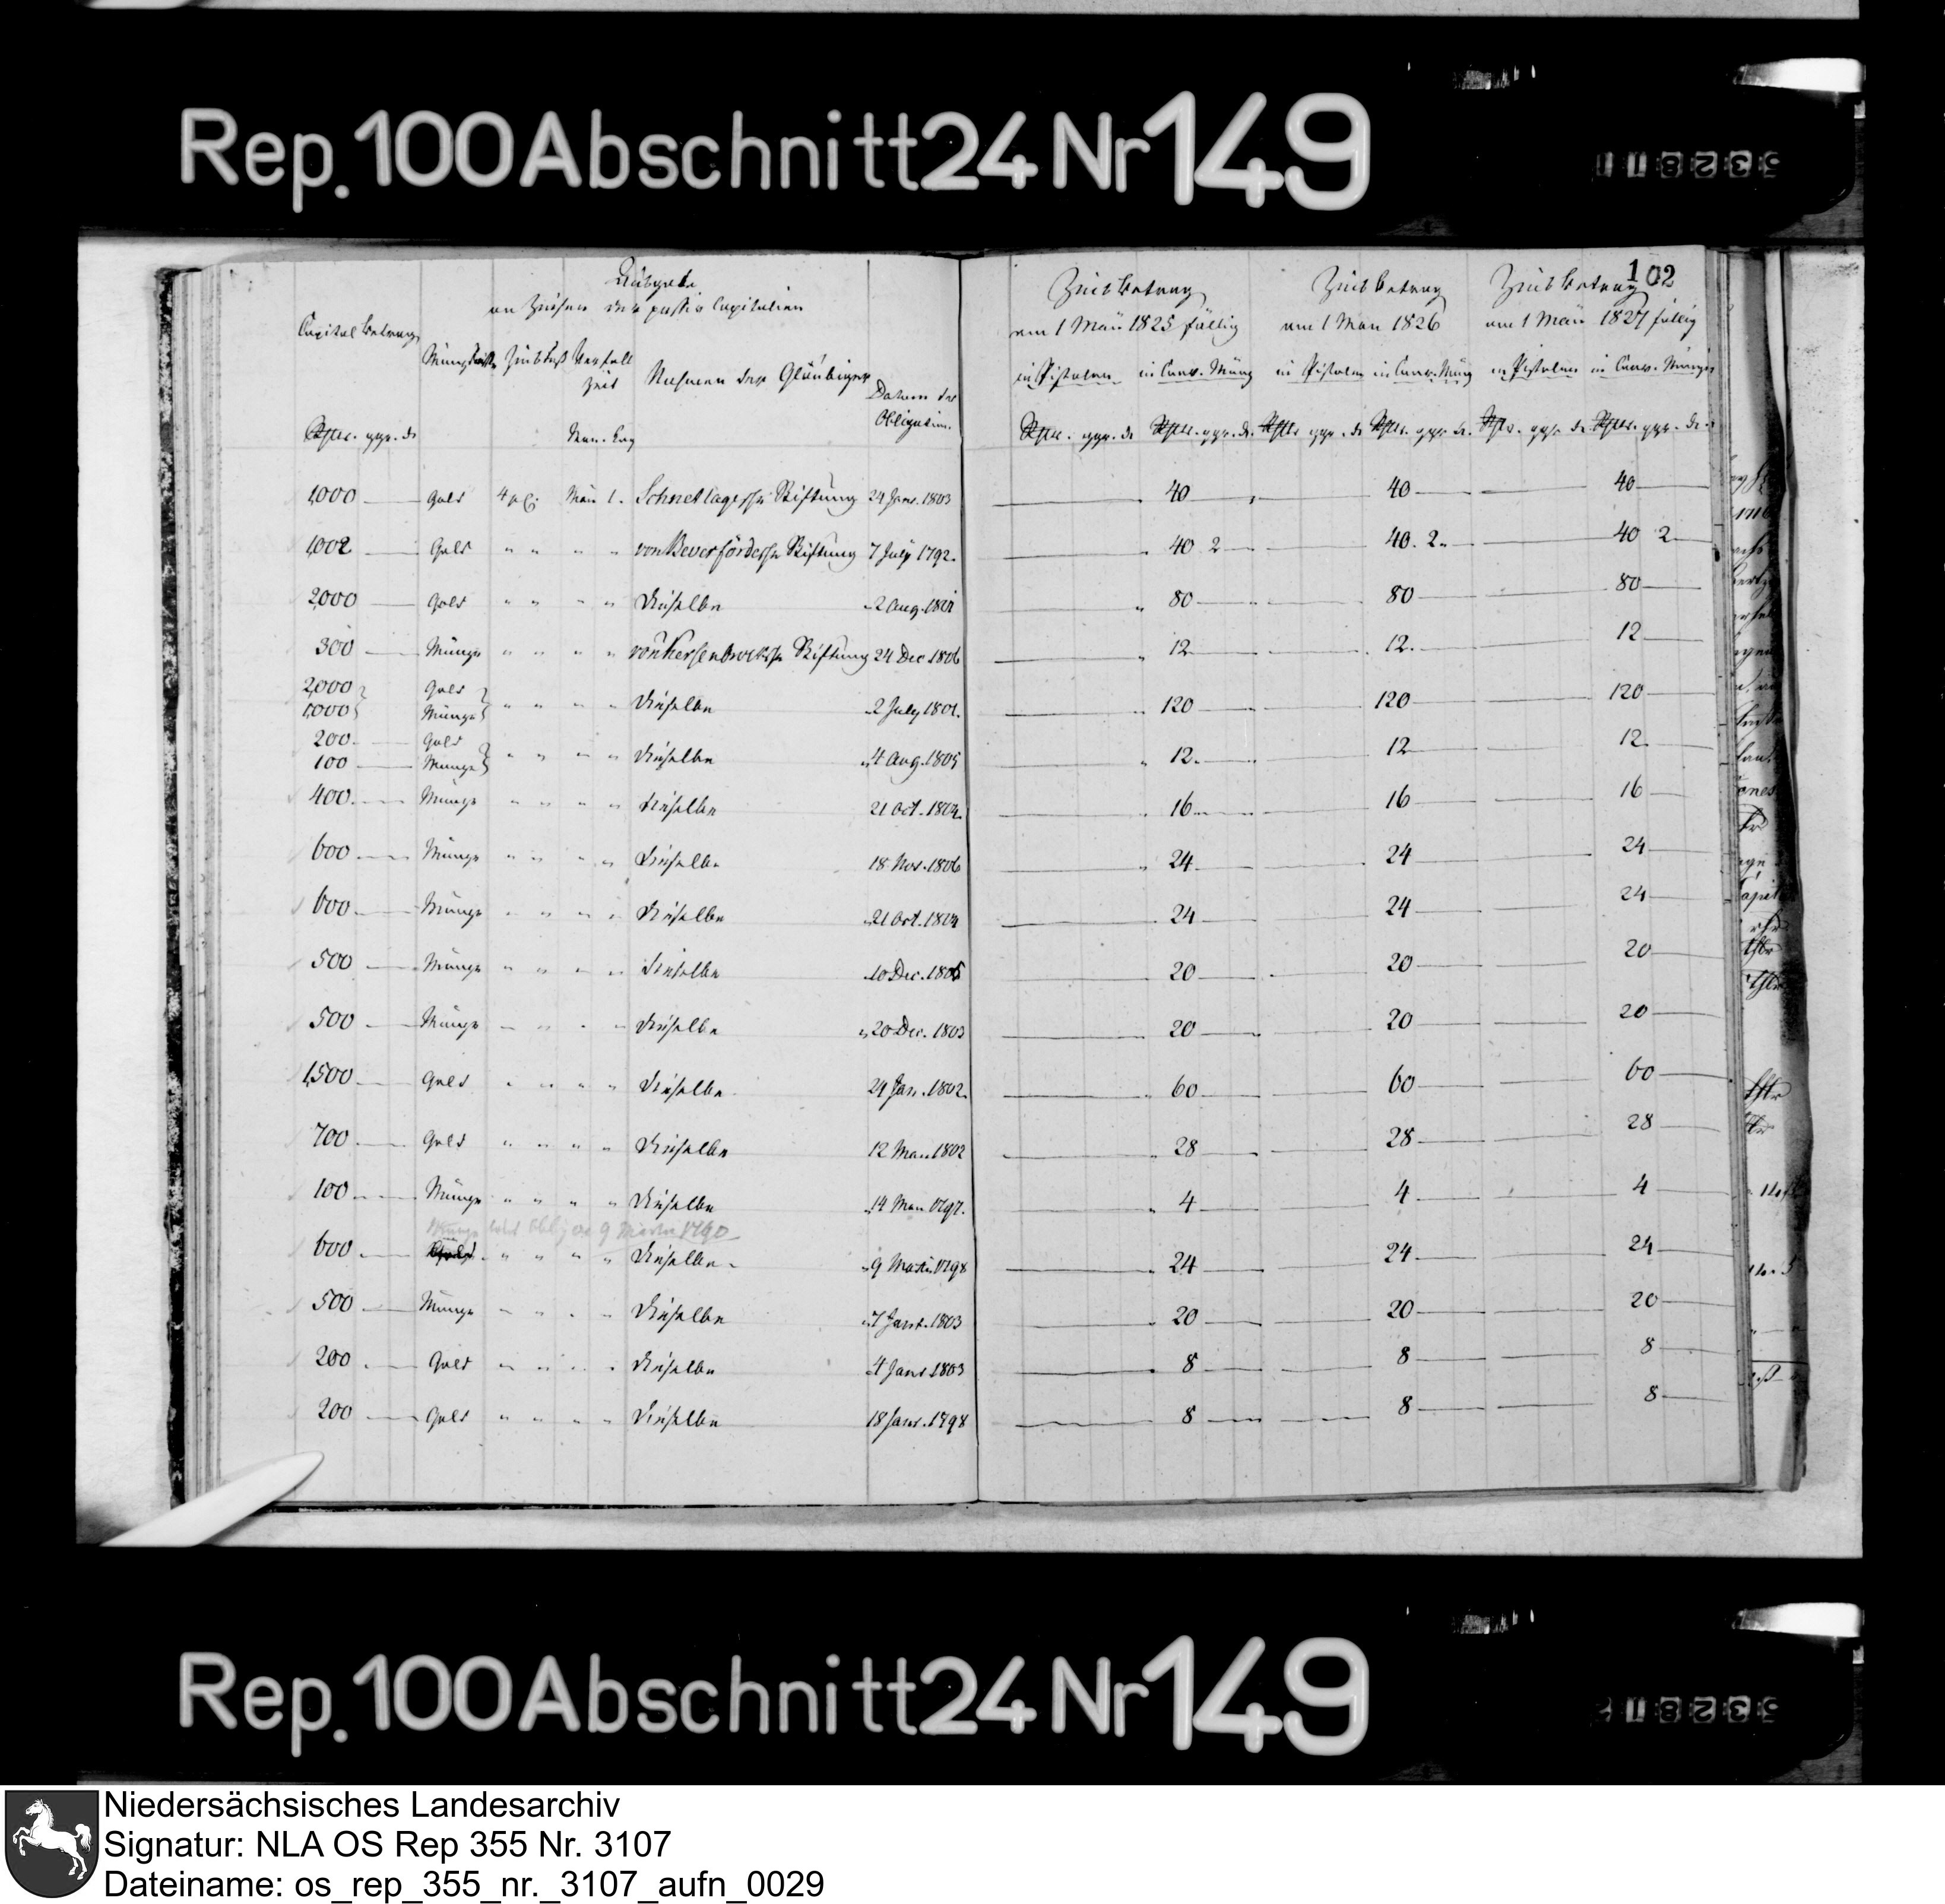 Rep. 100 Abschnitt 24 Nr 149
102
Ausgabe
an Zinsen der passiv Capitalien
Capital Betrag
Zinsfuß Verfall
Zeit
Nahmen der Gläubiger
Datum der
Obligation.
Rthlr. ggr. d.
Mon. Tag
Zins Betrag
am 1 Mai 1825 fällig
in Pistolen in Conv. Münz
Rthlr. ggr. d. Rthlr. ggr. d.
Zins Betrag
am 1 Mai 1826
in Pistolen in Conv. Münz
Rthlr. ggr. d. Rthlr. ggr. d.
Zins Betrag
am 1 Mai 1827 fällig
in Pistolen in Conv. Münze
Rthlr. ggr. d. Rthlr. ggr. d.
1000 — Gold 4 pC. Mai 1. Schnetlagesche Stiftung 24 Janr. 1803 — 40 — 40 — 40 —
1002 — Gold " " " " von Beverfördesche Stiftung 7 July 1792. — 40 2 — 40. 2. 40 2
2000 — Gold " " " " Dieselbe 2 Aug. 1801 — 80 — 80 — 80 —
300 — Münze " " " " von Kerssenbrocksche Stiftung 24 Dec 1806 — 12 — 12. — 12 —
2000 } Gold }
1000 } Münze } " " " " Dieselbe 2 July 1801. — 120 — 120 — 120 —
200. — Gold }
100 — Münze } " " " " Dieselbe 4 Aug. 1805 — 12. — 12 — 12.
400. — Münze " " " " Dieselbe 21 Oct. 1804. — 16 — 16 — 16 —
600 — Münze " " " " Dieselbe 18 Nov. 1806 — 24 — 24 — 24 —
600. — Münze " " " " Dieselbe 21 Oct. 1804 — 24 — 24 — 24 —
500 — Münze " " " " Dieselbe 10 Dec. 1805 — 20 — 20 — 20 —
500 — Münze " " " " Dieselbe 20 Dec. 1803 — 20 — 20 — 20 —
1500 — Gold " " " " Dieselbe 24 Jan. 1802. — 60 — 60 — 60 —
700 — Gold " " " " Dieselbe 12 Mai 1802 — 28 — 28 — 28 —
100 — Münze " " " " Dieselbe 14 Mai 1797. — 4 — 4 — 4 —
600 — Gold " " " " Dieselbe 9 Martii 1798 — 24 — 24 — 24 —
500 — Münze " " " " Dieselbe 7 Janr. 1803 — 20 — 20 — 20 —
200 — Gold " " " " Dieselbe 4 Janr 1803 — 8 — 8 — 8 —
200 — Gold " " " " Dieselbe 18 Janr. 1798 — 8 — 8 — 8 —
Rep. 100 Abschnitt 24 Nr 149
Niedersächsisches Landesarchiv
Signatur: NLA OS Rep 355 Nr. 3107
Dateiname: os_rep_355_nr._3107_aufn_0029